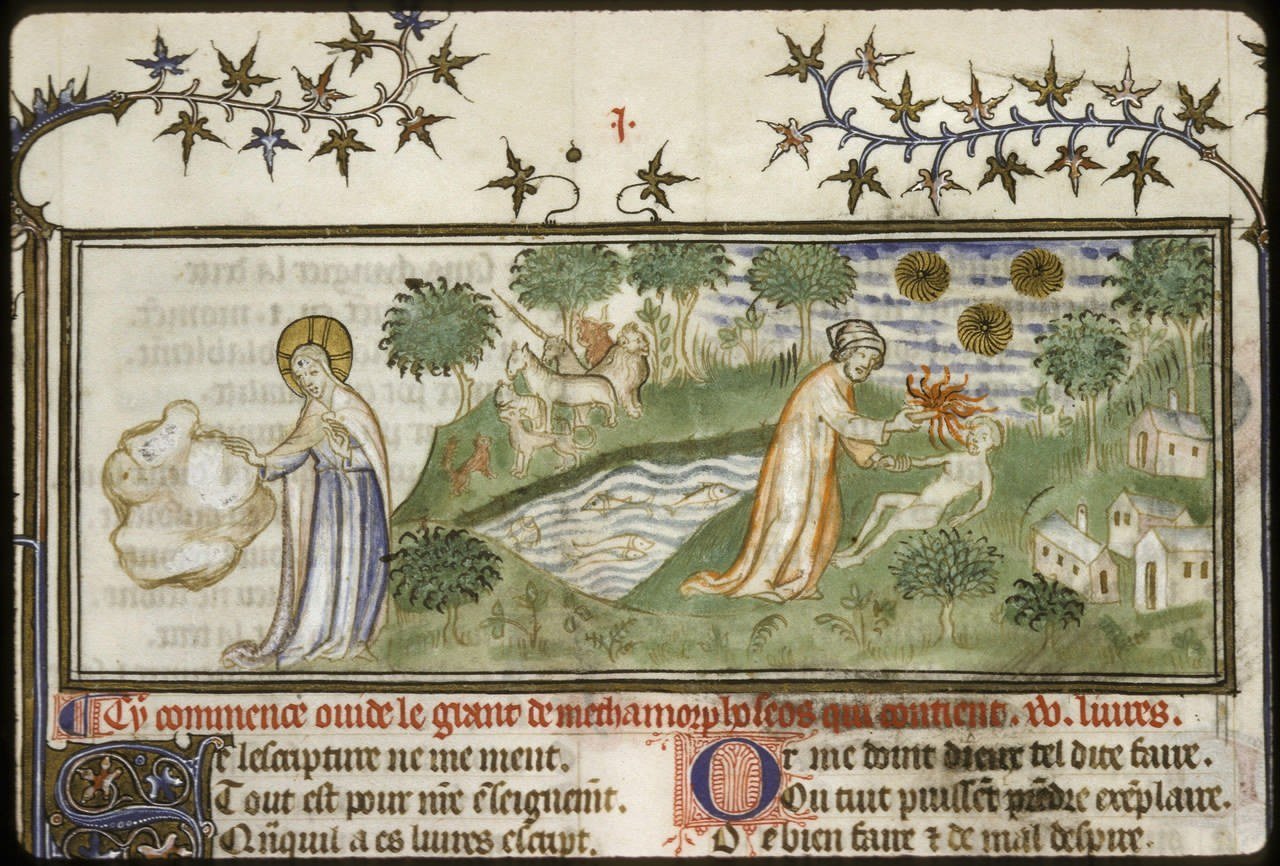 .I.
Cy commence ouide le grant de methamorphoseos qui contient .xv. liures.
Se lescripture ne me ment.
Tout est pour nr̄e ēseignem̄t.
Quanquil a es liures escript.
Or me doint dieux tel dite faire.
Ou tuit puissēt prēdre exēplaire.
De bien faire ⁊ de mal despire.